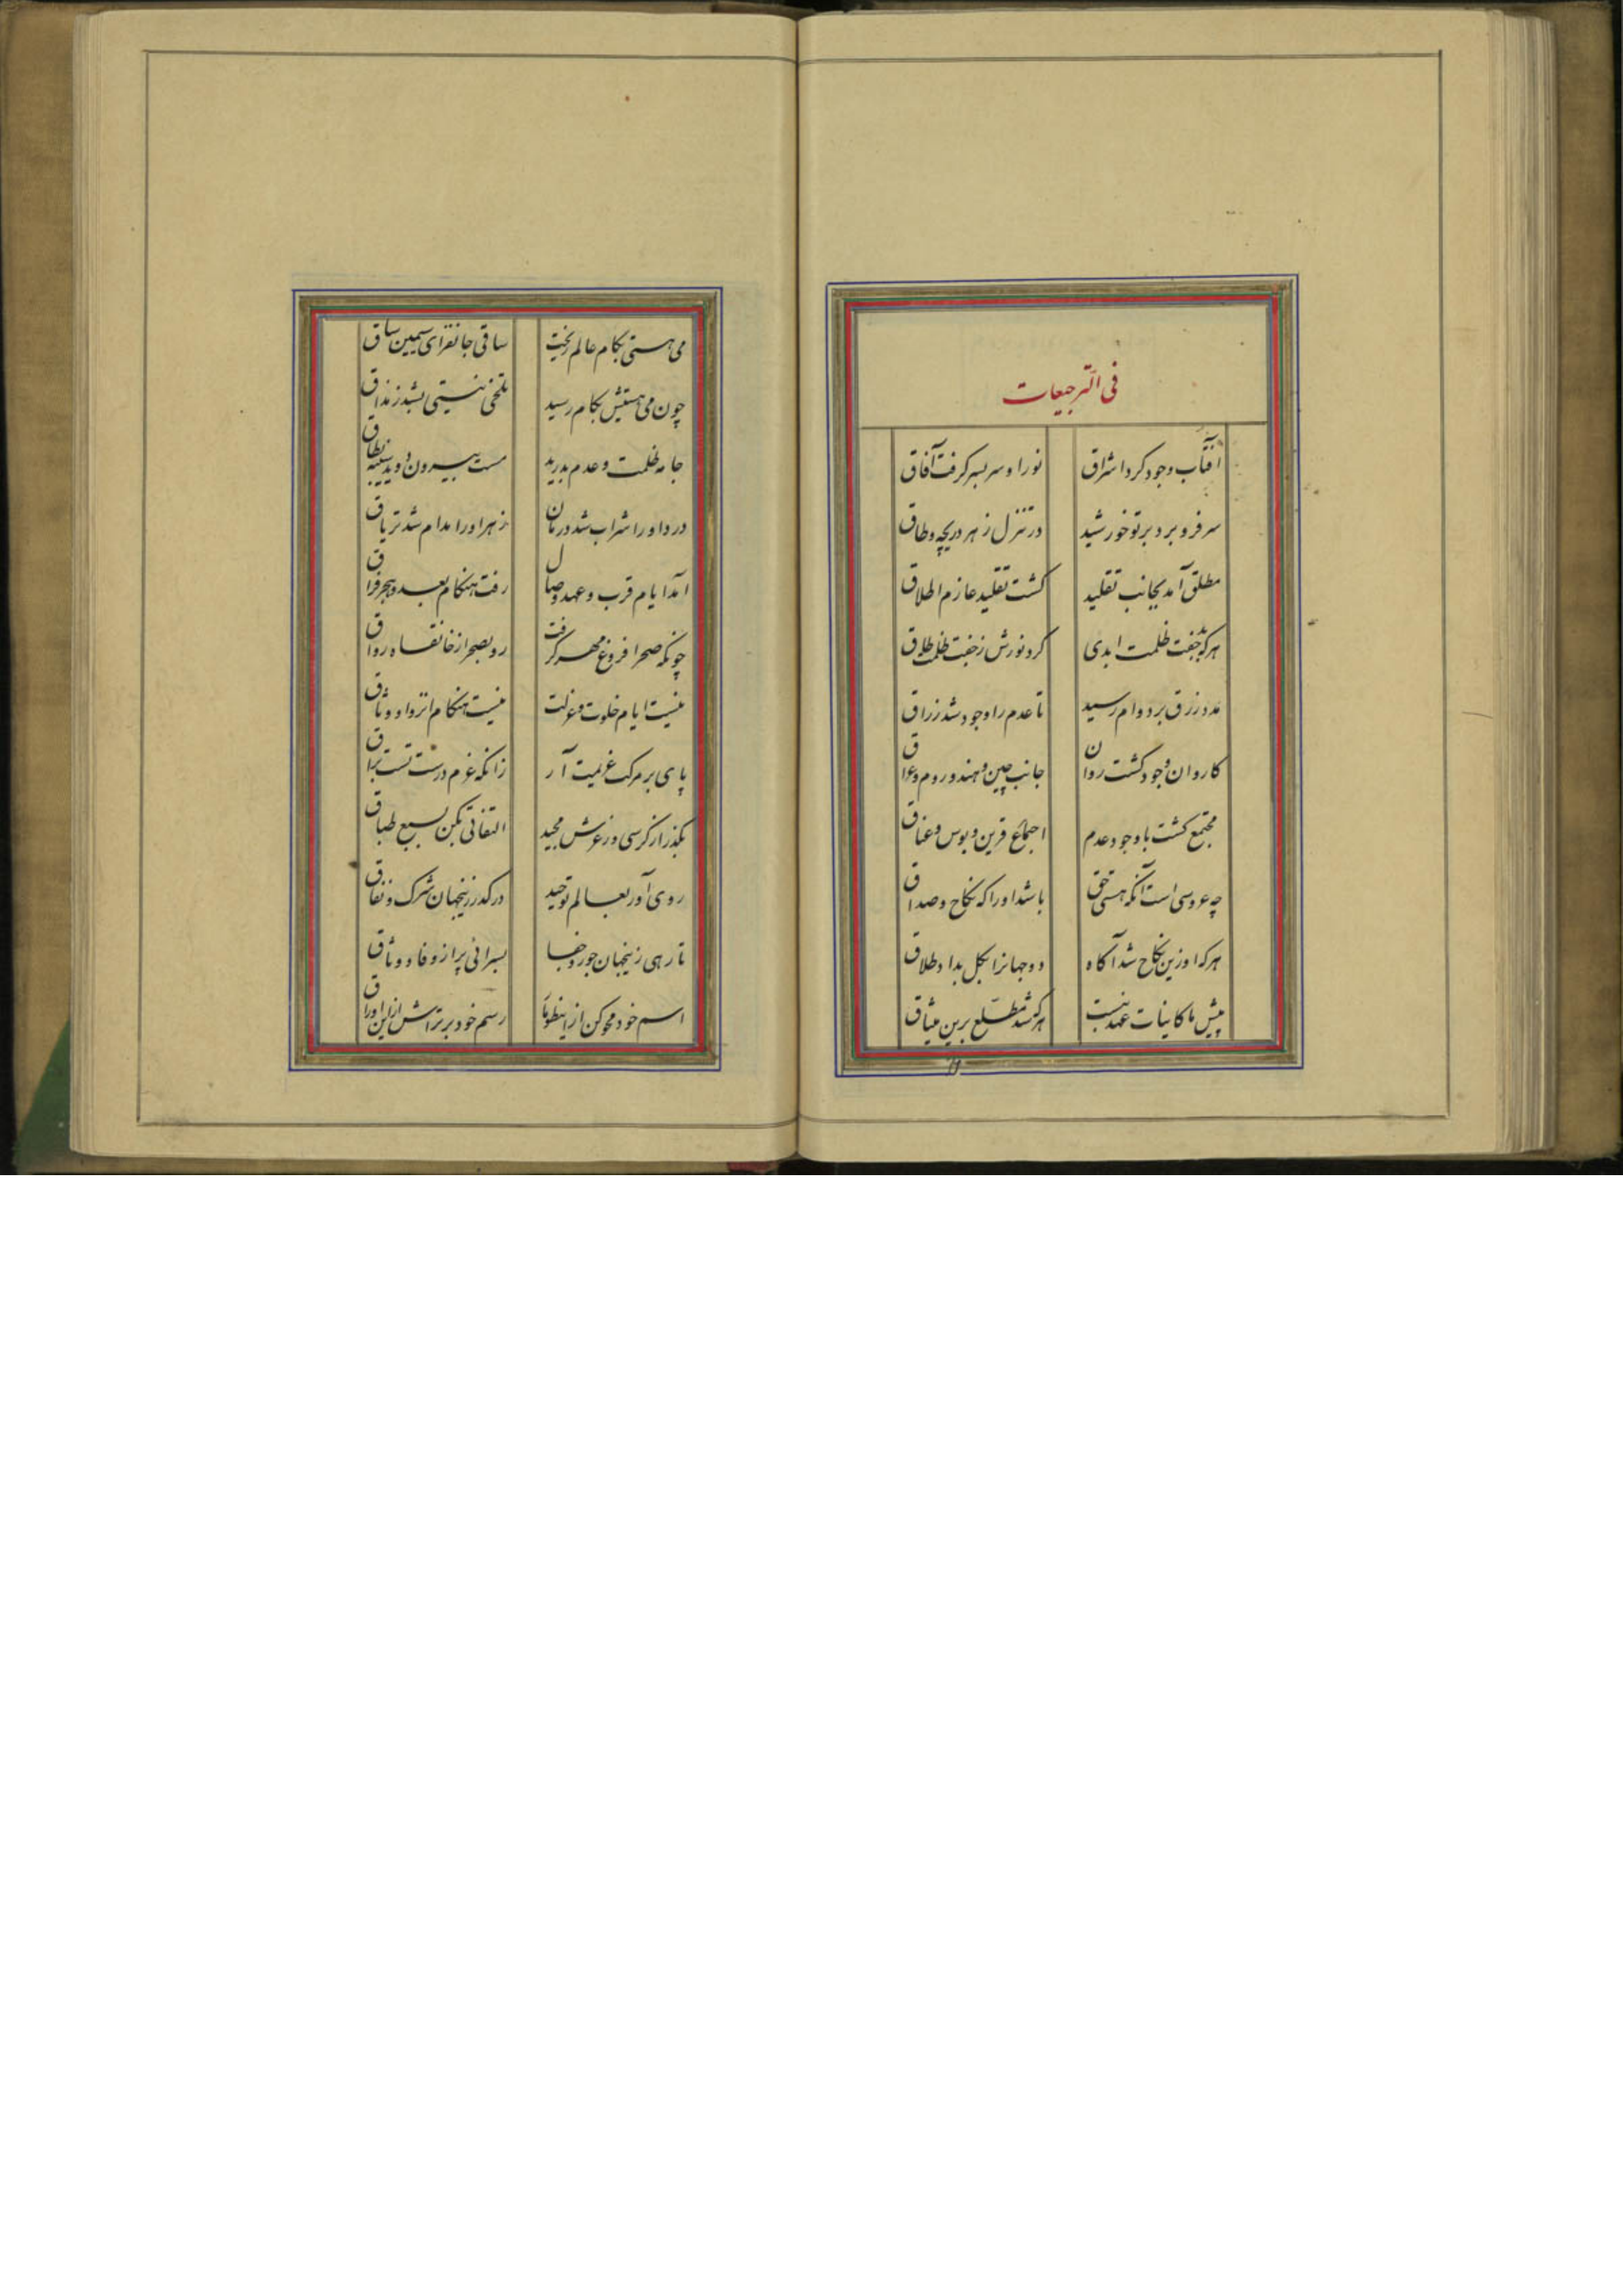 فی الترجیعات
آفتاب وجود کرد اشراق نور او سر بسر کرفت آفاق
سر فرو برد برتو خورشید در تنزل ز هر دریچه و طاق
مطلق آمد بجانب تقلید کشت تقلید عازم اطلاق
هرکه بد جفت ظلمت ابدی کرد نورش ز جفت ظلمت طلاق
مدد رزق بر دوام رسید تا عدم را وجود شد رزاق
کاروان وجود کشت روان جانب چین و هند و روم و عراق
مجتمع کشت با وجود عدم اجتماع قرین و بوس و عناق
چه عروسی است آنکه هستی حق باشد او را که نکاح و صداق
هرکه او زین نکاح شد آکاه دو جهانرا بکل بداد طلاق
پیش ما کاینات عهد نبست هر که شد مطلع برین میثاق
می هستی بکام عالم ریخت ساقی جانفزای سیمین ساق
چون می هستیش بکام رسید تلخی نیستی بشد ز مذاق
جامه ظلمت و عدم بدرید مست بیرون دوید بسته نطاق
درد او را شراب شد درمان زهر او را مدام شد تریاق
آمد ایام قرب و عهد وصال رفت هنکام بعد و هجر و فراق
چونکه صحرا فروغ مهر کرفت رو بصحرا ز خانقاه و رواق
نیست ایام خلوت و عزلت نیست هنکام انزوا و وثاق
پای بر مرکب عزیمت آر زانکه عزم درست تست براق
بکذر از کرسی و ز عرش مجید التفاتی مکن بسبع طباق
روی آور بعالم توحید درکذر زینجهان شرک و نفاق
تا رهی زینجهان جور و جفا بسرائی پر از وفا و وثاق
اسم خود محو کن از این طومار رسم خود بر تراش ازین اوراق